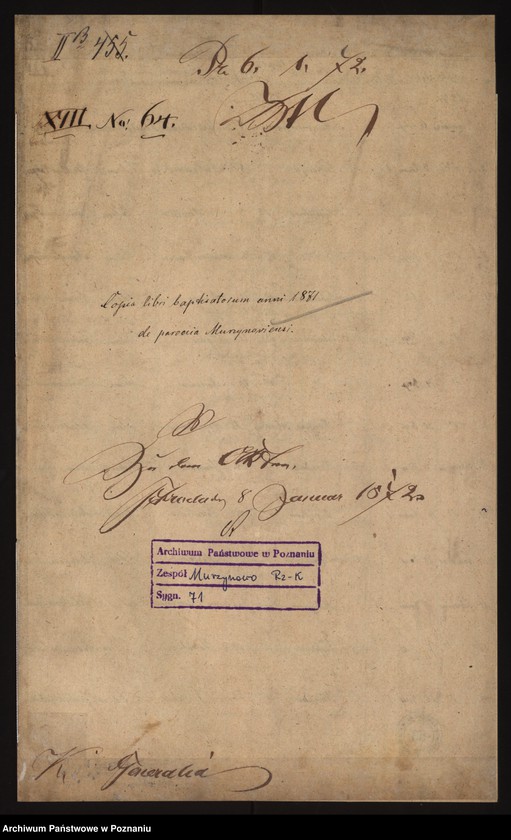 II B 455.
Pr. 6. 1. 72.
XVII No. 64.
Copia libri baptisatorum anni 1871
de parocia Murzynoviensi.
Zu den Akten.
8 Januar 1872
Archiwum Państwowe w Poznaniu
Zespół Murzynowo Rz-K
Sygn. 71
Generalia
Archiwum Państwowe w Poznaniu
Archiwum Państwowe w Poznaniu